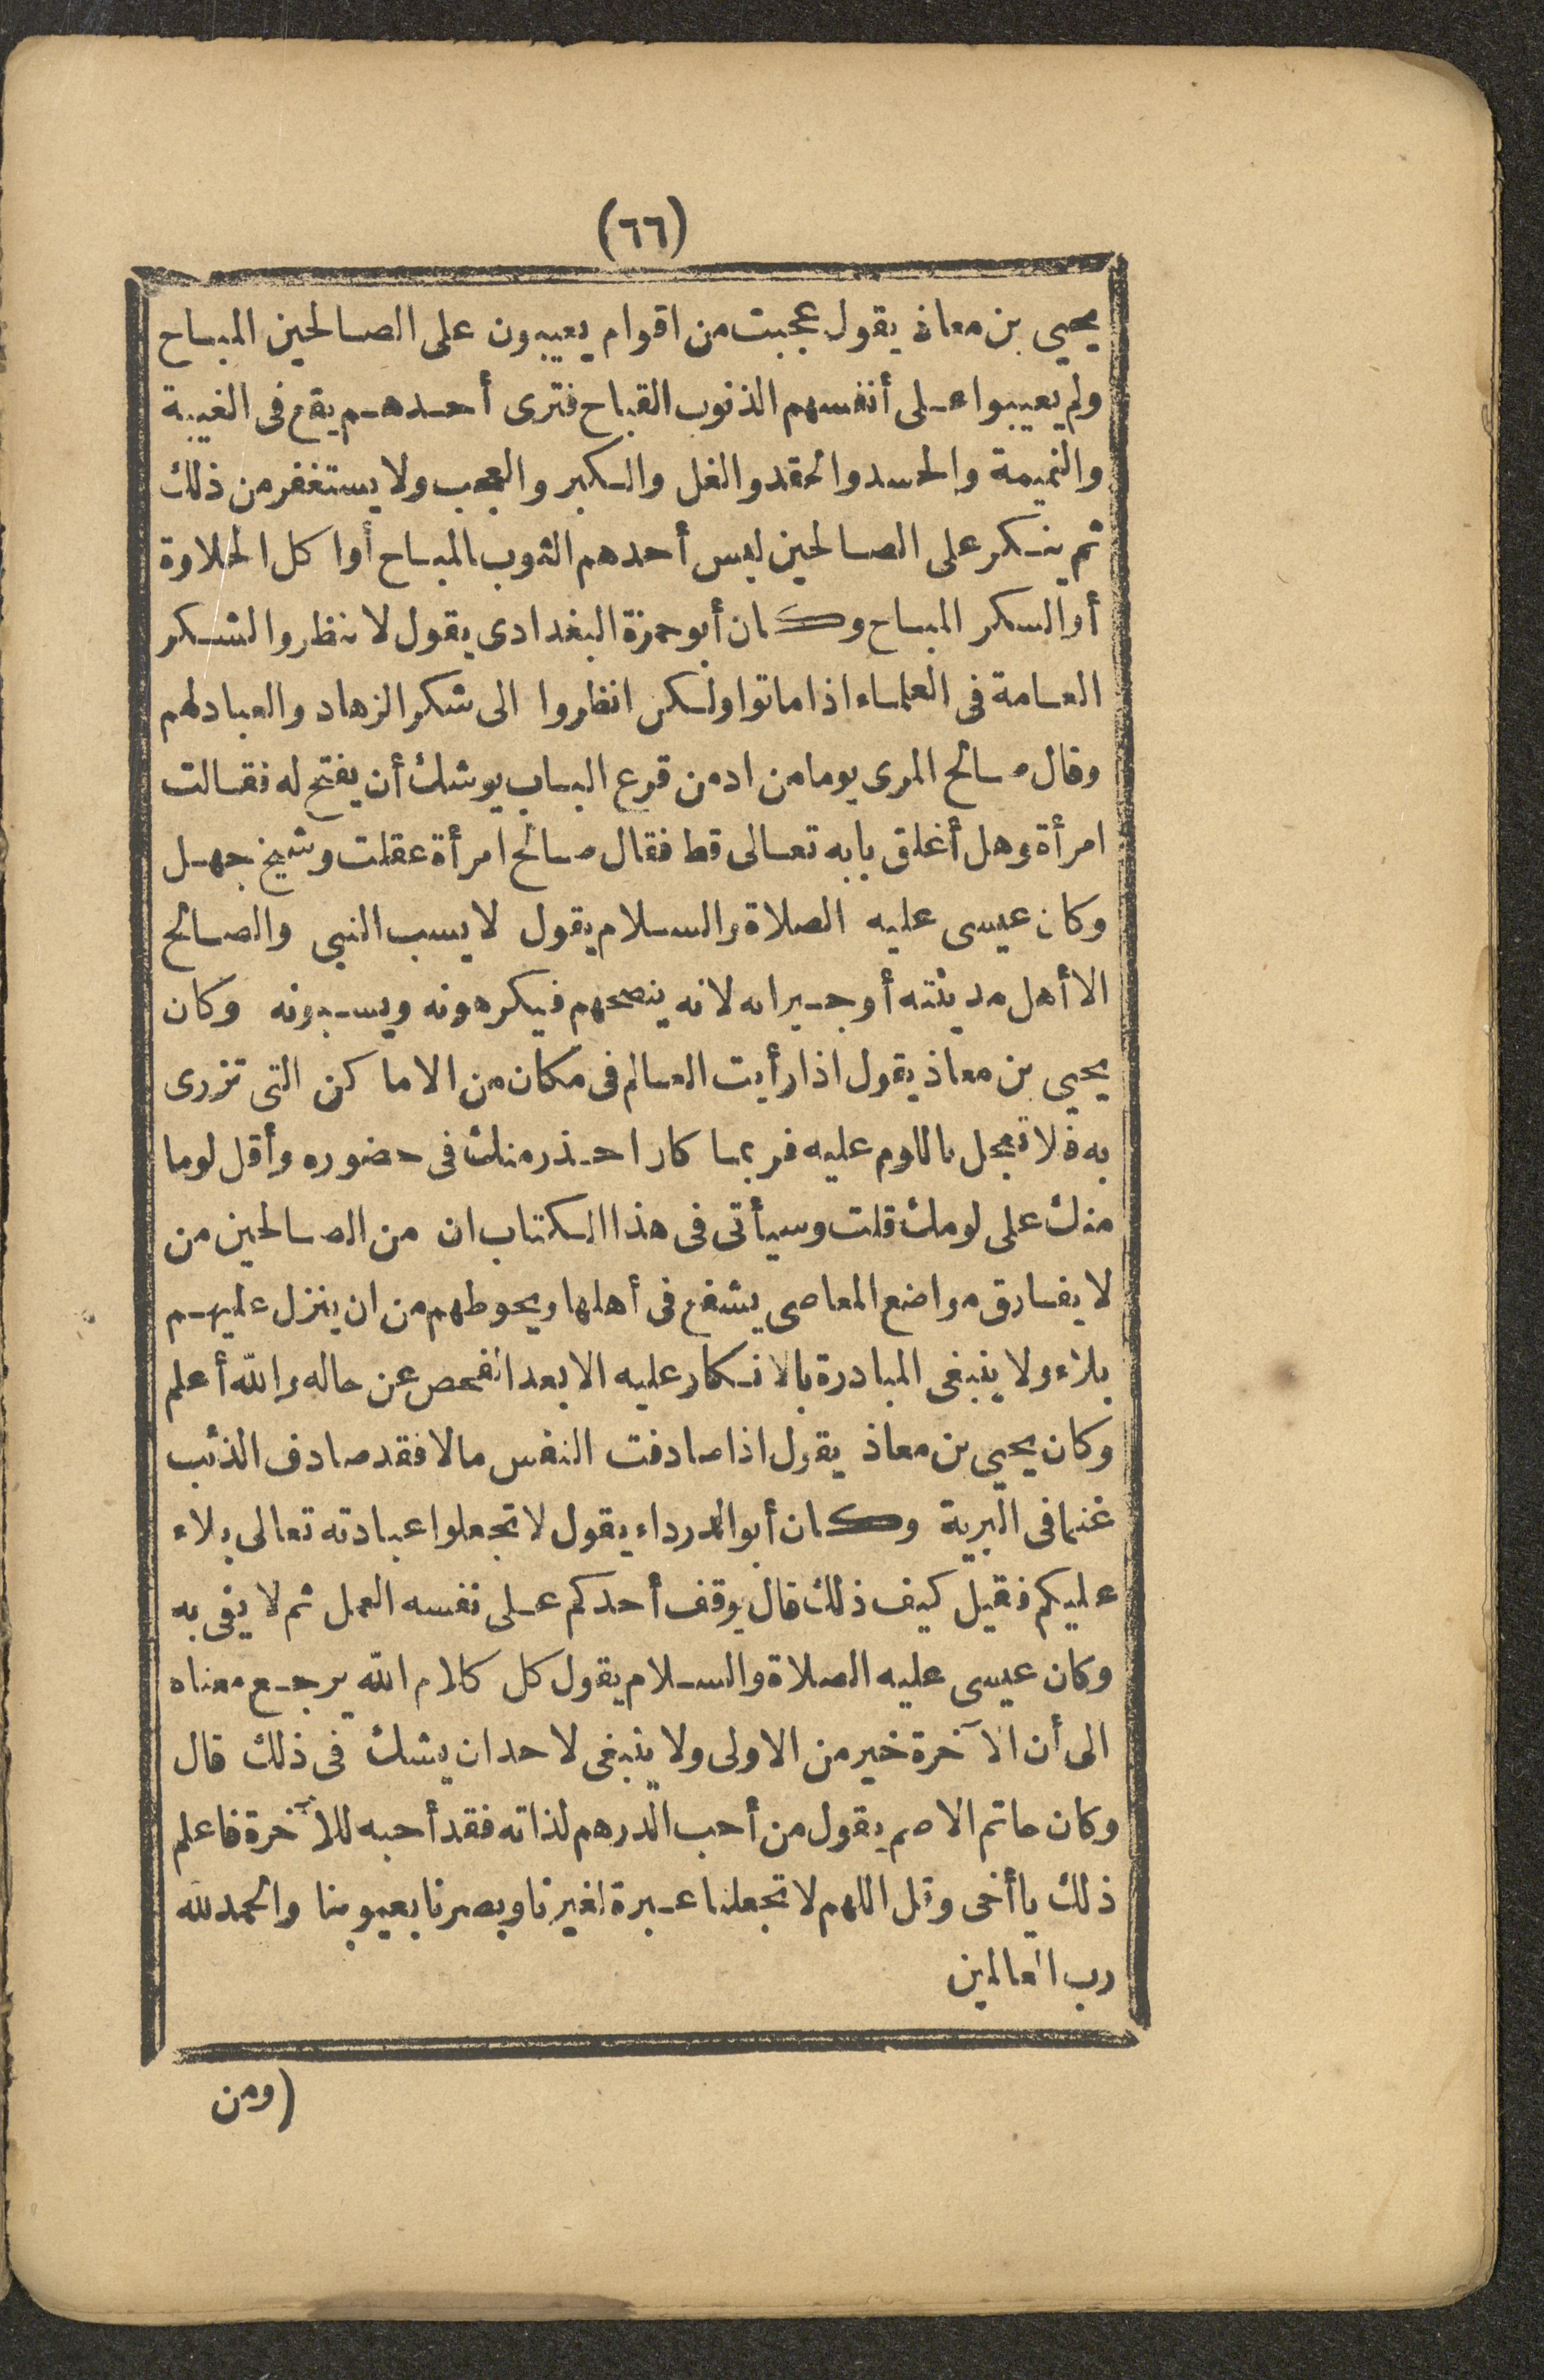 (٦٦)
يحيى بن معاذ يقول عجبت من اقوام يعيبون على الصالحين المباح
ولم يعيبوا على أنفسهم الذنوب القباح فترى أحدهم يقع فى الغيبة
والنميمة والحسد والحقد والغل والكبر والعجب ولا يستغفر من ذلك
ثم ينكر على الصالحين لبس أحدهم الثوب المباح أو اكل الحلاوة
أو السكر المباح وكان أبو حمزة البغدادى يقول لا تنظروا الشكر
العامة فى العلماء اذا ماتوا ولكن انظروا الى شكر الزهاد والعباد لهم
وقال صالح المرى يوما من ادمن قرع الباب يوشك أن يفتح له فقالت
امرأة وهل أغلق بابه تعالى قط فقال صالح امرأة عقلت وشيخ جهل
وكان عيسى عليه الصلاة والسلام يقول لا يسب النبى والصالح
الا أهل مدينته أو جيرانه لانه ينصحهم فيكرهونه ويسبونه وكان
يحيى بن معاذ يقول اذا رأيت العالم فى مكان من الاماكن التى تزرى
به فلا تعجل باللوم عليه فربما كان احذر منك فى حضوره وأقل لوما
منك على لومك قلت وسيأتى فى هذا الكتاب ان من الصالحين من
لا يفارق مواضع المعاصى يشفع فى أهلها ويحوطهم من ان ينزل عليهم
بلاء ولا ينبغى المبادرة بالانكار عليه الا بعد الفحص عن حاله والله أعلم
وكان يحيى بن معاذ يقول اذا صادفت النفس مالا فقد صادف الذئب
غنما فى البرية وكان أبو الدرداء يقول لا تجعلوا عبادته تعالى بلاء
عليكم فقيل كيف ذلك قال يوقف أحدكم على نفسه العمل ثم لا يفى به
وكان عيسى عليه الصلاة والسلام يقول كل كلام الله يرجع معناه
الى أن الآخرة خير من الاولى ولا ينبغى لاحد ان يشك فى ذلك قال
وكان حاتم الاصم يقول من أحب الدرهم لذاته فقد أحبه للآخرة فاعلم
ذلك يا أخى وقل اللهم لا تجعلنا عبرة لغيرنا وبصرنا بعيوبنا والحمد لله
رب العالمين
(ومن